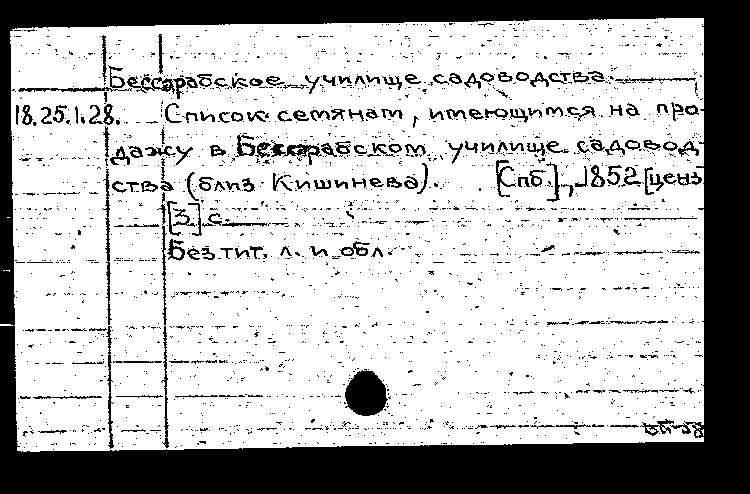 Бессарабское училище садоводства.
18.25.1.28. Список семянам, имеющимся на про-
дажу в Бессарабском училище садовод-
ства (близ Кишинева). [Спб.], 1852 [ценз
[3] с.
Без тит. л. и обл.